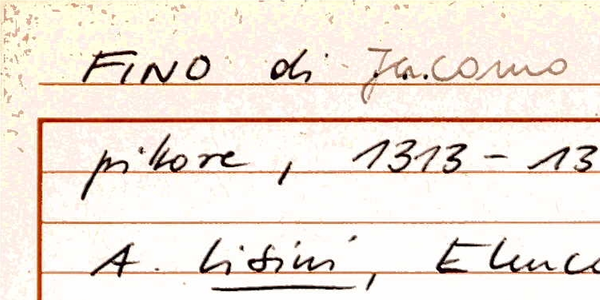 FINO di Jacomo
pittore, 1313 - 13
A. Lisini, Elenco